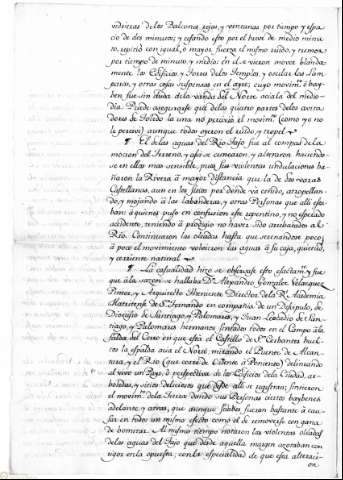 vidrieras de los Balcones, rejas, y ventanas por tiempo y espa-
cio de dos minutos; y cesando esto por el breve de medio minu-
to, repitió con igual, ó mayor fuerza el mismo ruido, y temor
por tiempo de minuto, y medio: en el se vieron mover blanda-
mente los Edificios, y Torres de los Templos, y oscilar las Lam-
paras, y otras cosas suspensas en el ayre; cuyo movimto. ó bay-
ben fue sin duda de la vanda del Norte acia la del medio-
dia. Puede asegurarse que de las quatro partes de los mora-
dores de Toledo la una no percivió el movimto. (como yo no
le percivi) aunque todos oyeron el ruido, y tropel.
El de las aguas del Rio Tajo fue al compas de la
mocion del Terreno, y esta se comenzaron, y alteraron haciendo-
se en ellas mas sensible, pues las violentas undulaciones ba-
ñaron la Rivera á mayor distancia que la de dos varas
Castellanas, aun en los sitios por donde vá ceñido, atropellan-
do, y mojando á las labanderas, y otras Personas que alli esta-
ban; á quienes puso en confusion este repentino, y no esperado
accidente, teniendo á prodigio no haver sido arrebatados al
Rio. Continuaron las oleadas hasta que serenandose poco
á poco el movimiento volvieron las aguas á su caja, quietud,
y corriente natural.
La casualidad hizo se observase esto exactamte. y fue
que á la sazon se hallaba Dn. Alexandro Gonzalez Velazquez
Pintor, y Arquitecto theniente Director de la Rl. Academia
Matritense de Sn. Fernando en compañia de un Discipulo, de
Dionisio de Santiago, y Palomares, y Juan Leocadio de San-
tiago, y Palomares hermanos sentados todos en el Campo á la
falda del Cerro en que está el Castillo de Sn. Cervantes buel-
tas la espalda acia el Norte, mirando el Puente de Alcan-
tara, y el Rio (que corre de Oriente á Poniente) delineando
al vivo un Pays, ó perspectiva de los Edificios de la Ciudad, ar-
boledas, y vistas deliciosas que desde alli se registran; sintieron
el movimto. de la tierra dando sus Personas ciertos baybenes
adelante, y atras, que aunque suabes fueron bastante á cau-
sar en todos un mismo efecto como el de removerse con gana
de bomitar. Al mismo tiempo notaron las violentas oleadas
de las aguas del Tajo que desde aquella margen azotaban con
rigor en la opuesta; con la especialidad de que esta alteraci-
on